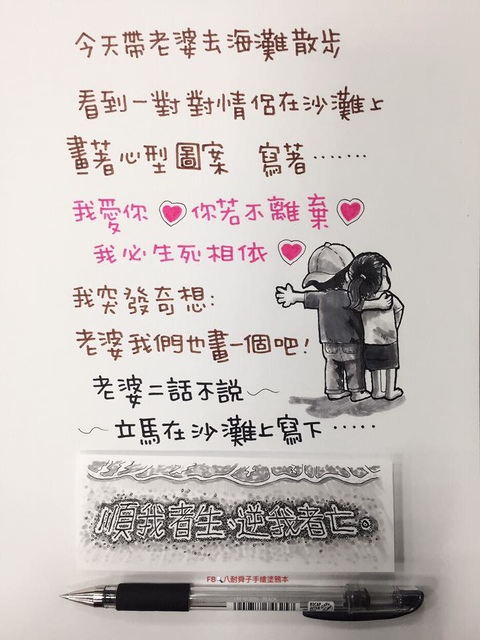 今天帶老婆去海灘散步
看到一對對情侶在沙灘上
畫著心型圖案 寫著⋯⋯⋯
我愛你 你若不離棄
我必生死相依
我突發奇想:
老婆我們也畫一個吧!
老婆二話不說~
~立馬在沙灘上寫下⋯⋯
順我者生、逆我者亡。
FB 八耐舜子手繪塗鴉本